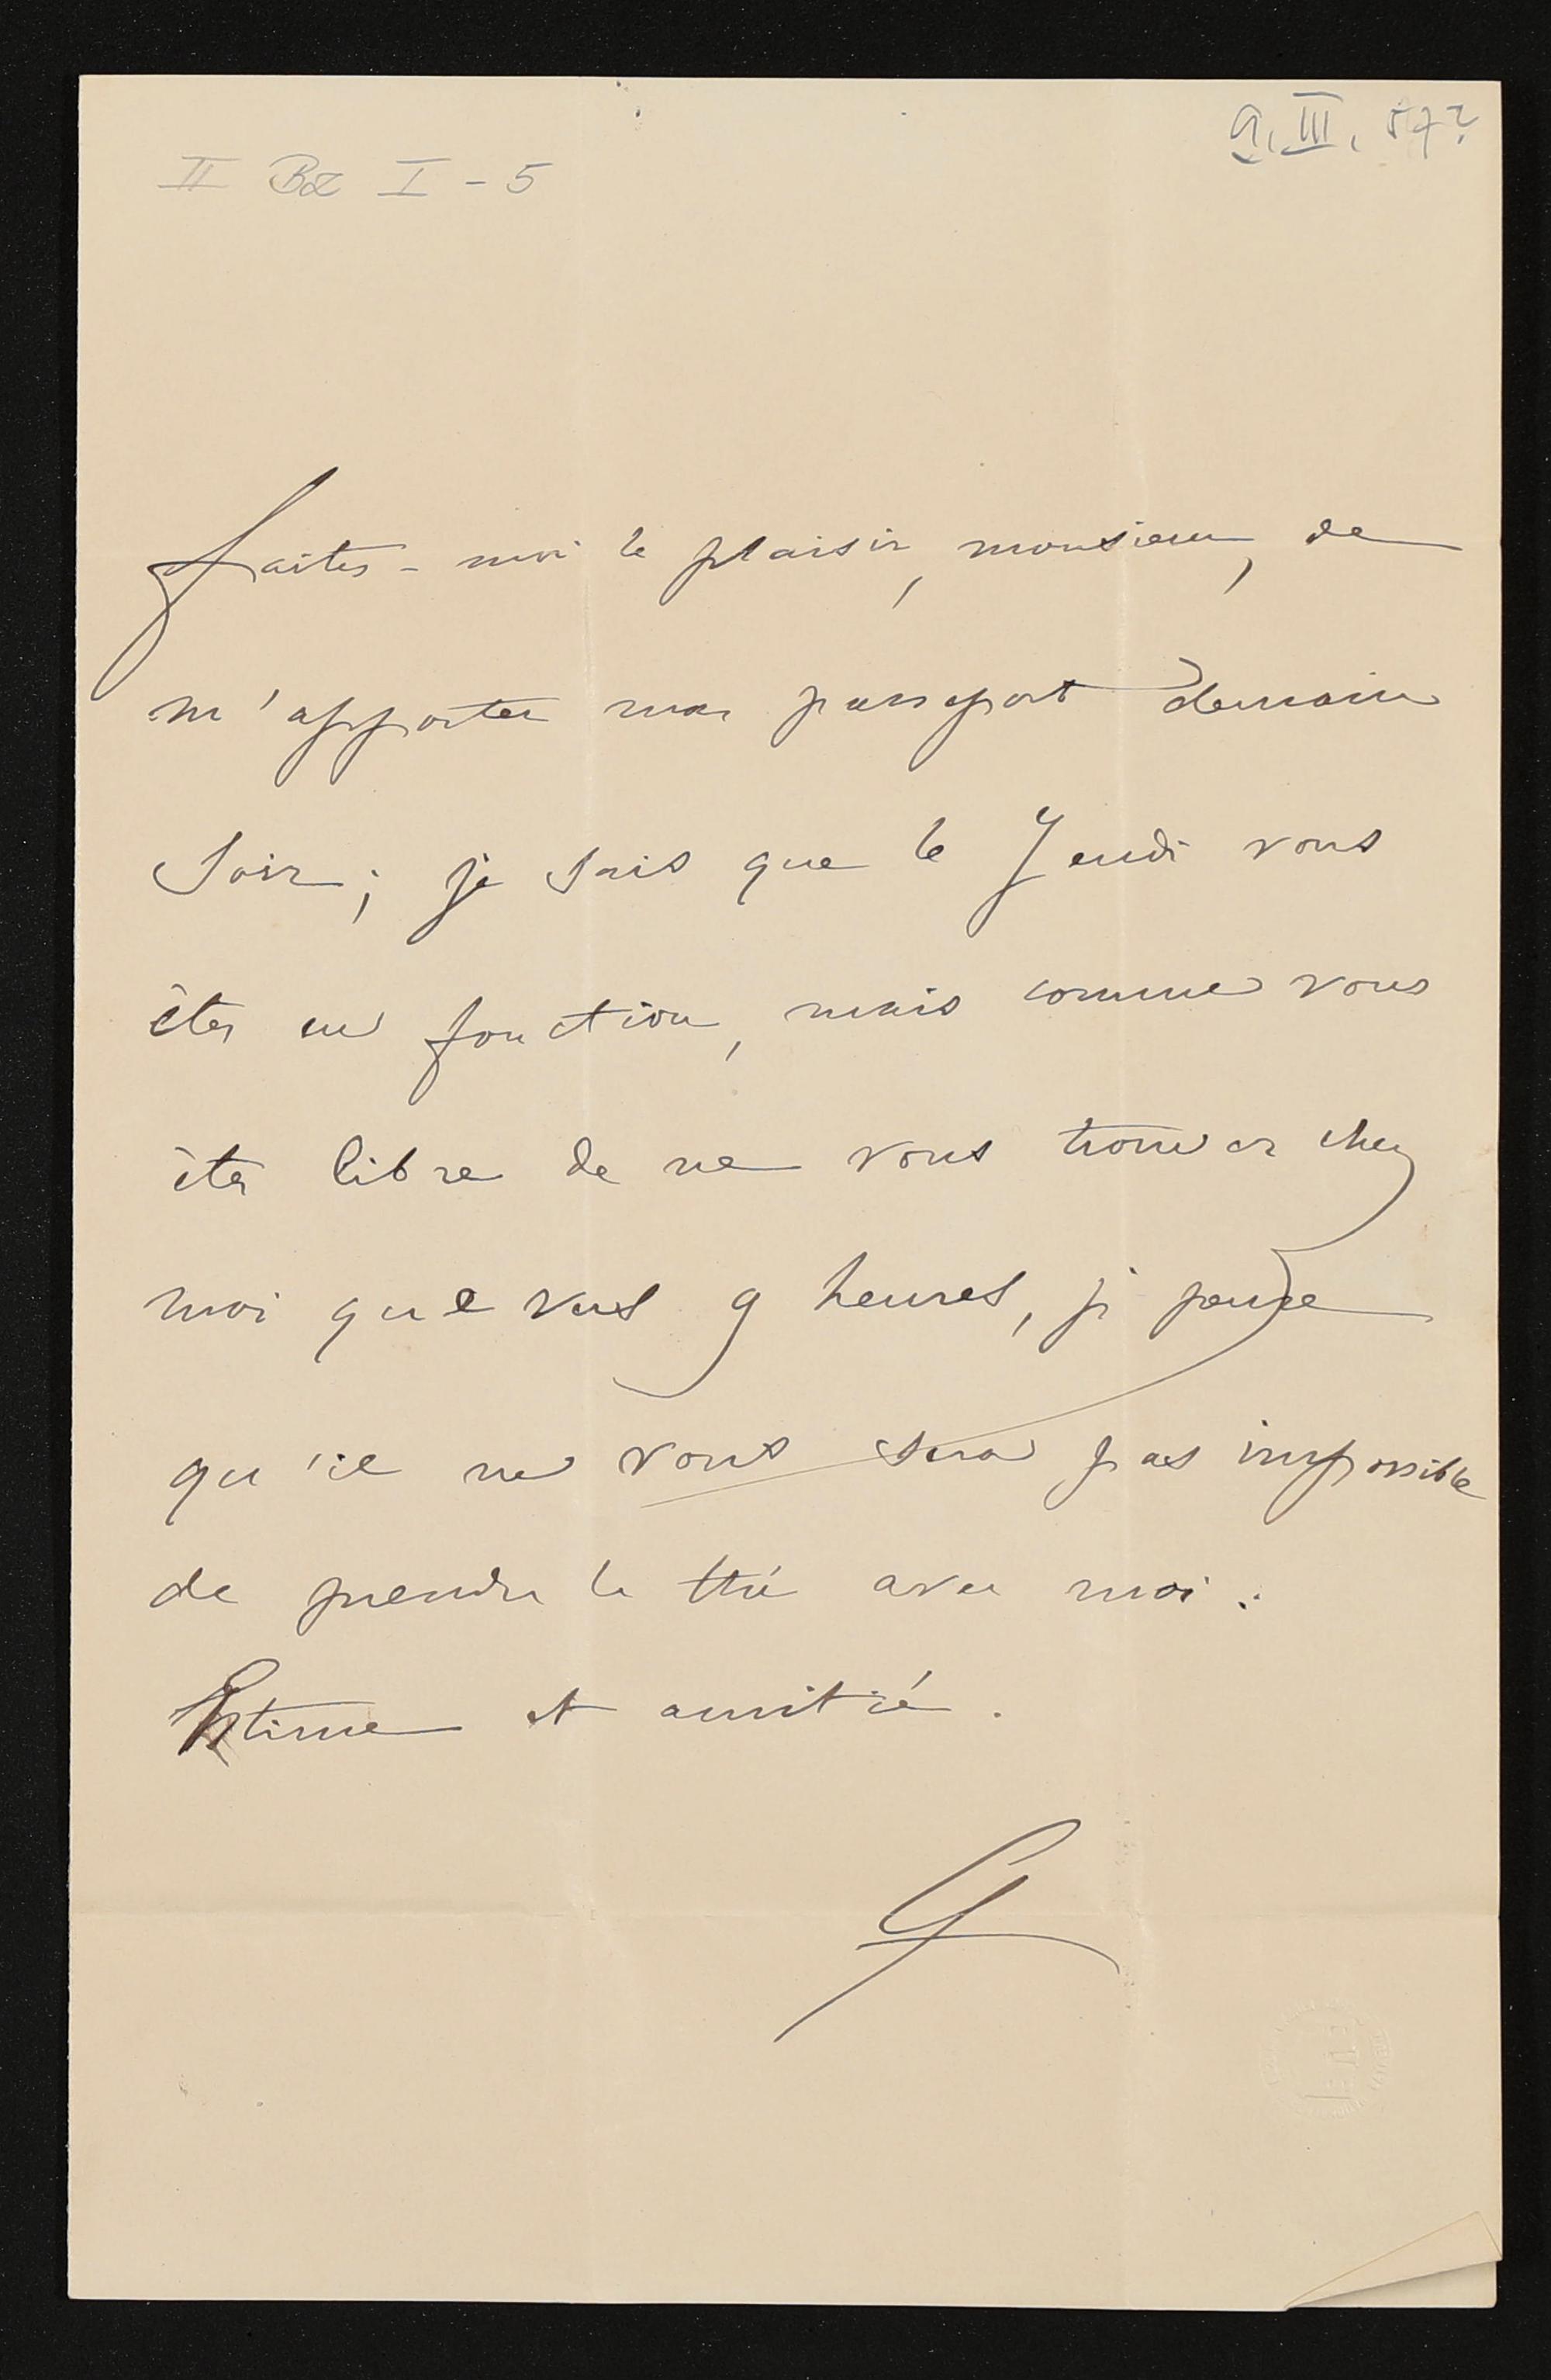 9. III. 57?
II Bz I - 5
Faites-moi le plaisir, monsieur, de
m'apporter mon passeport demain
soir; je sais que le Jeudi vous
êtes en fonction, mais comme vous
êtes libre de ne vous trouver chez
moi que vers 9 heures, je pense
qu'il ne vous sera pas impossible
de prendre le thé avec moi.
Estime et amitié.